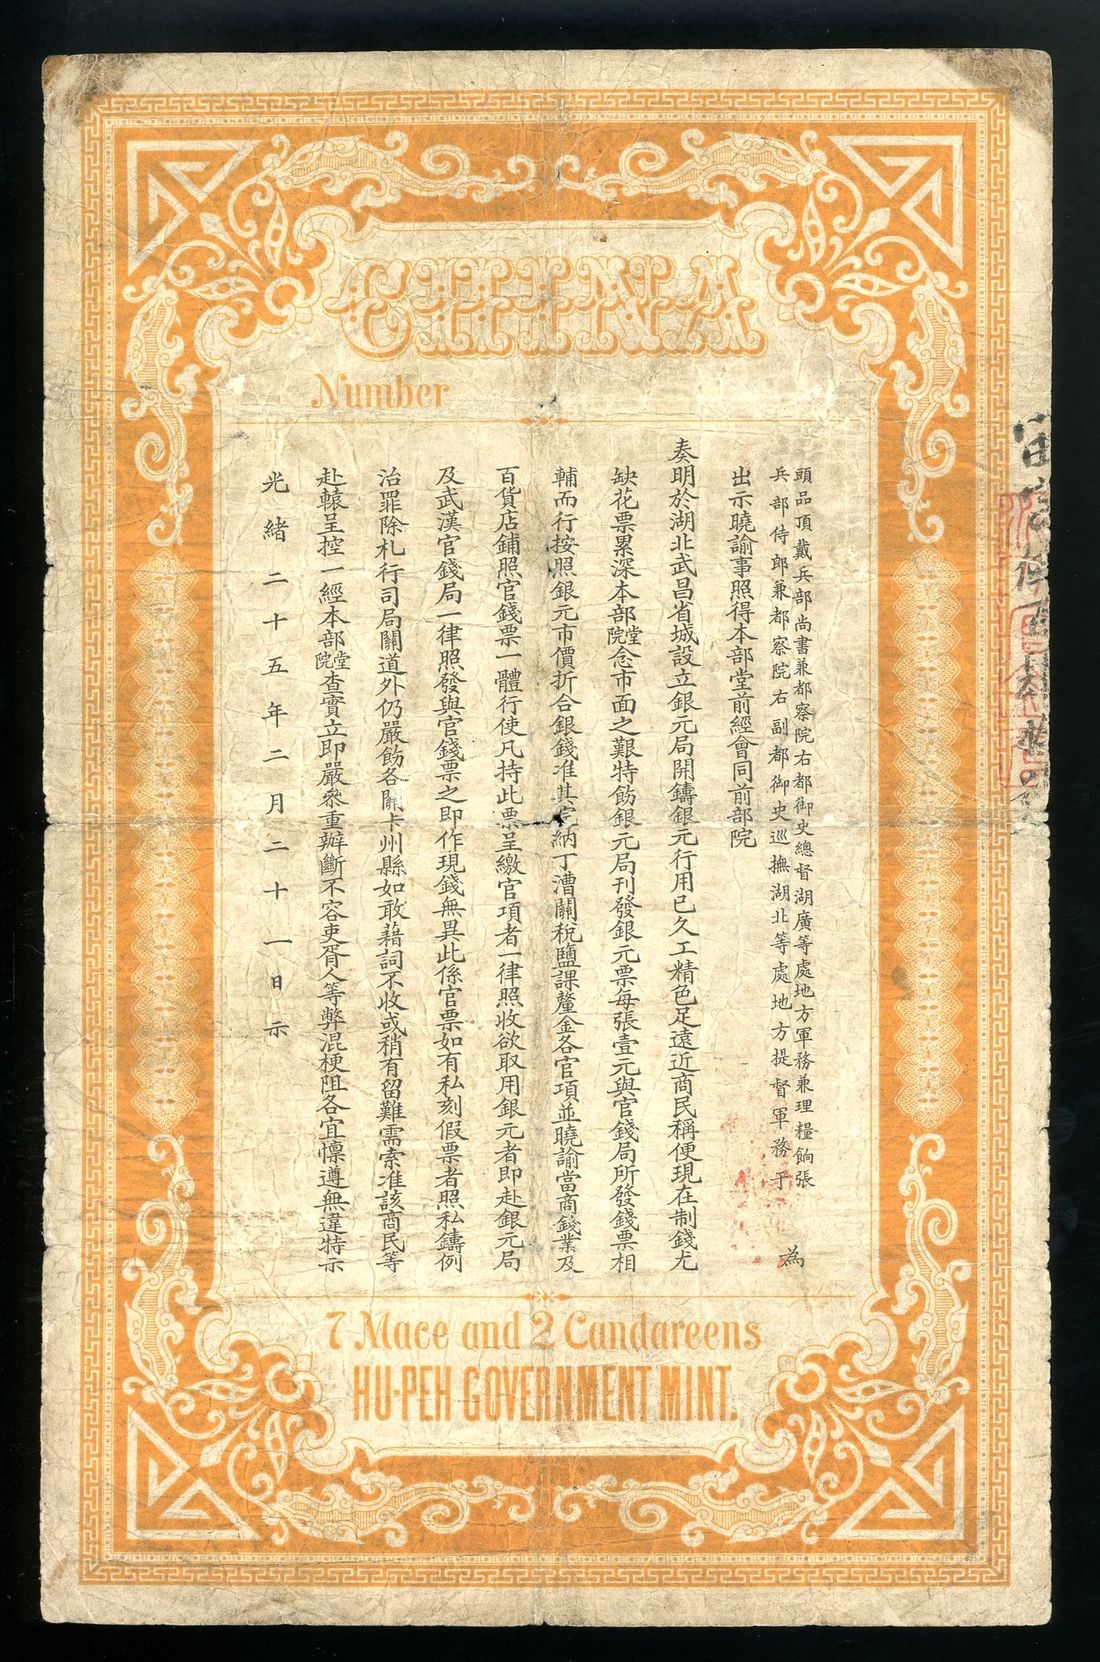 CHINA
Number
頭品頂戴兵部尚書兼都察院右都御史總督湖廣等處地方軍務兼理糧餉張
兵部侍郎兼都察院右副都御史巡撫湖北等處地方提督軍務于
為
出示曉諭事照得本部堂前經會同前部院
奏明於湖北武昌省城設立銀元局開鑄銀元行用已久工精色足遠近商民稱便現在制錢尤
缺花票累深本部堂院念市面之艱特飭銀元局刊發銀元票每張壹元與官錢局所發錢票相
輔而行按照銀元市價折合銀錢准其完納丁漕關稅鹽課釐金各官項並曉諭當商錢業及
百貨店鋪照官錢票一體行使凡持此票呈繳官項者一律照收欲取用銀元者即赴銀元局
及武漢官錢局一律照發與官錢票之即作現錢無異此係官票如有私刻假票者照私鑄例
治罪除札行司局關道外仍嚴飭各關卡州縣如敢藉詞不收或稍有留難需索准該商民等
赴轅呈控一經本部堂院查實立即嚴參重辦斷不容吏胥人等弊混梗阻各宜懍遵無違特示
光緒二十五年二月二十一日示
7 Mace and 2 Candareens
HU-PEH GOVERNMENT MINT.